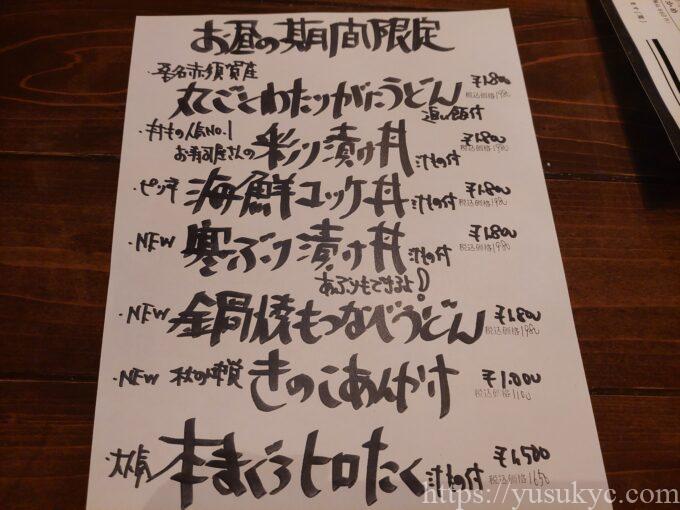 お昼の期間限定
桑名赤須賀産
丸ごとわたりがにうどん ¥1,800
追い飯付 税込価格1980
・丼もの人気No.1
お寿司屋さんの 彩り漬け丼 汁もの付 ¥1,800
税込価格1980
・ピリ辛 海鮮ユッケ丼 汁もの付 ¥1,800
税込価格1980
・NEW 寒ぶり漬け丼 汁もの付 ¥1,800
税込価格1980
あぶりもできるよ!
・NEW 鍋焼もつなべうどん ¥1,800
税込価格1980
・NEW 秋の味覚 きのこあんかけ ¥1,000
税込価格1100
・大人気 本まぐろトロたく 汁もの付 ¥1,500
税込価格1650
https://yusukyc.com